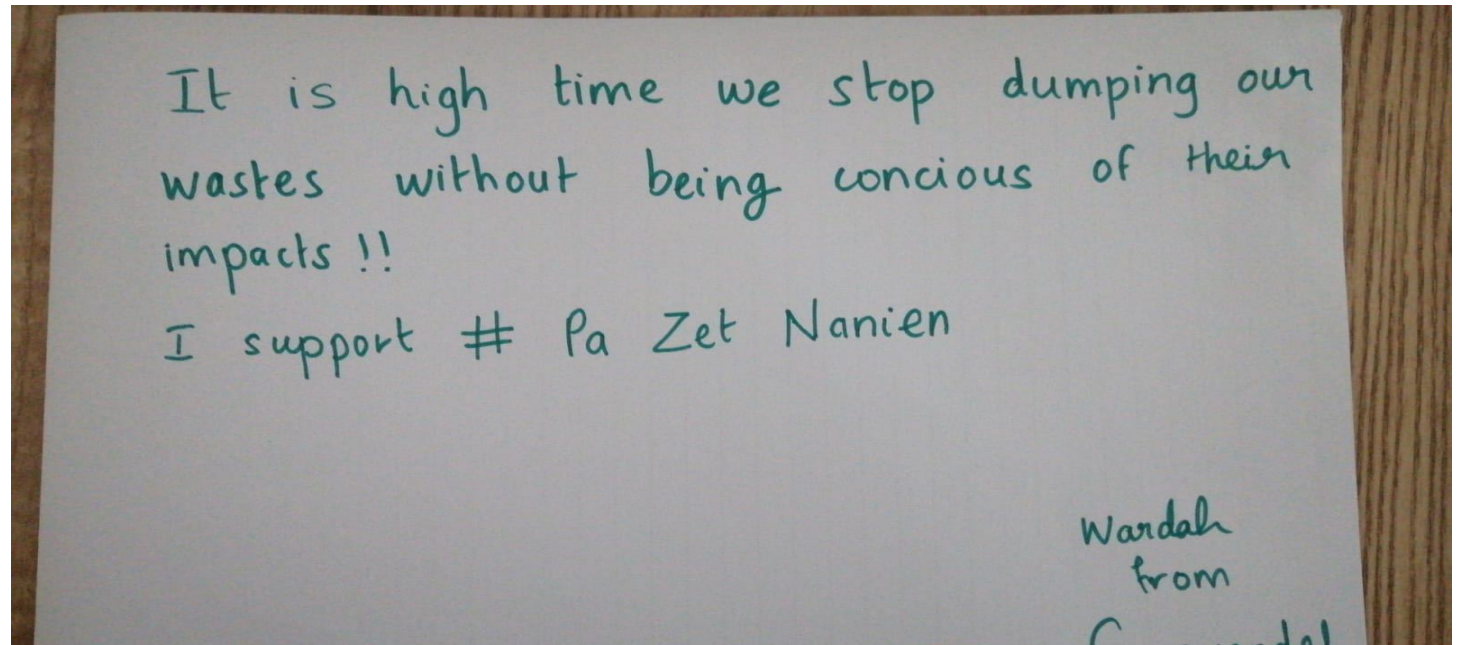 It is high time we stop dumping our
wastes without being concious of their
impacts !!
I support # Pa Zet Nanien
Wardah
from